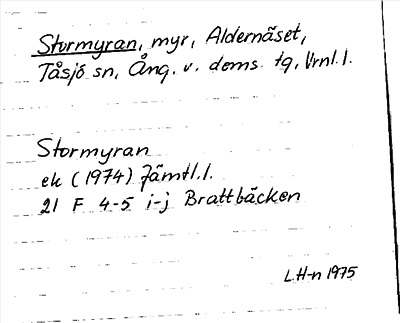 Stormyran, myr, Aldernäset,
Tåsjö sn, Ång. v. doms. tg, Vrnl. l.
Stormyran
ek (1974) Jämtl. l.
21 F 4-5 i-j Brattbäcken
L.H-n 1975